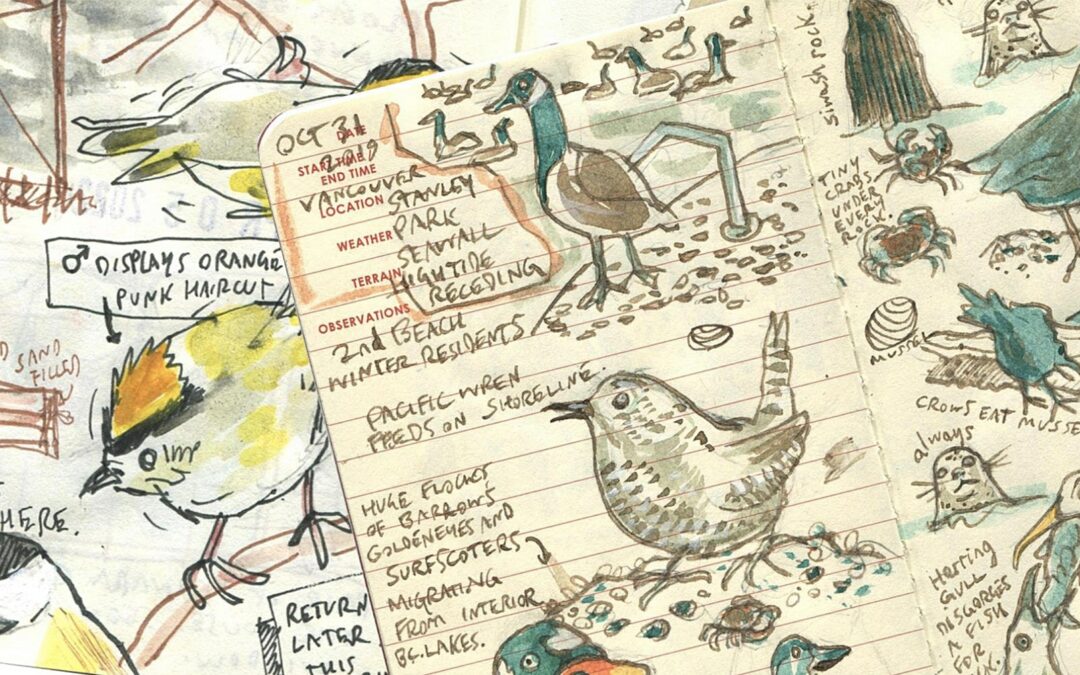 ♂ DISPLAYS ORANGE
PUNK HAIRCUT
SAND
FILLED
HERE.
RETURN
LATER
THIS
OCT 31
DATE
2019
START TIME
END TIME
VANCOUVER
LOCATION
STANLEY
PARK
WEATHER
SEAWALL
TERRAIN
HIGH TIDE
RECEDING
OBSERVATIONS
2nd BEACH
WINTER RESIDENTS
PACIFIC WREN
FEEDS ON SHORELINE.
HUGE FLOCKS
OF BARROWS
GOLDENEYES AND
SURFSCOTERS
MIGRATING
FROM INTERIOR
BC. LAKES.
siwash rock.
TINY
CRABS
UNDER
EVERY
ROCK.
MUSSEL
CROWS EAT MUSSE
always
Herring
GULL
DISGORGES
A FISH
FOR